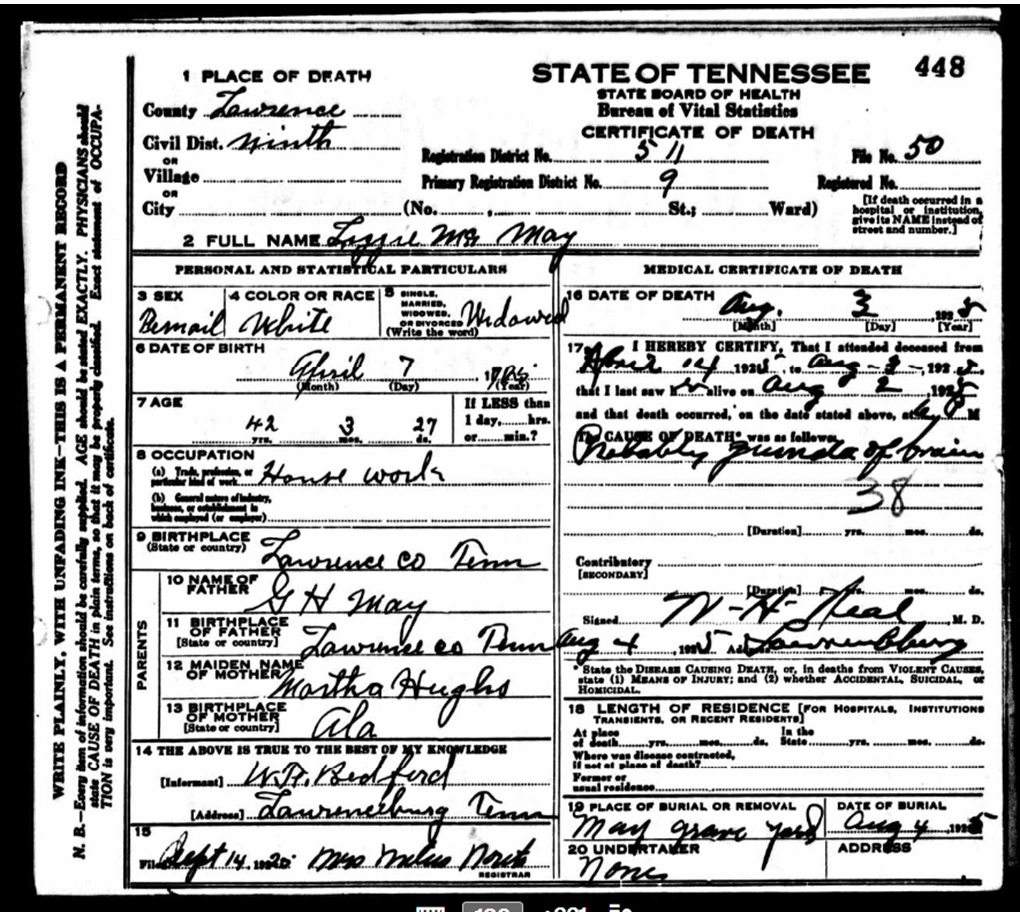 448
1 PLACE OF DEATH
STATE OF TENNESSEE
STATE BOARD OF HEALTH
Bureau of Vital Statistics
CERTIFICATE OF DEATH
County Lawrence
Civil Dist. Ninth
OR
Village
OR
City (No. , St.; Ward)
Registration District No. 511
File No. 50
Primary Registration District No. 9
Registered No.
[If death occurred in a
hospital or institution,
give its NAME instead of
street and number.]
2 FULL NAME May
WRITE PLAINLY, WITH UNFADING INK—THIS IS A PERMANENT RECORD
N. B.—Every item of information should be carefully supplied. AGE should be stated EXACTLY. PHYSICIANS should
state CAUSE OF DEATH in plain terms, so that it may be properly classified. Exact statement of OCCUPA-
TION is very important. See instructions on back of certificate.
PERSONAL AND STATISTICAL PARTICULARS
3 SEX
Femail
4 COLOR OR RACE
White
5 SINGLE,
MARRIED,
WIDOWED,
OR DIVORCED
(Write the word)
Widowed
6 DATE OF BIRTH
April 7
(Month) (Day) (Year)
7 AGE
42 yrs. 3 mos. 27 ds.
If LESS than
1 day, hrs.
or min.?
8 OCCUPATION
(a) Trade, profession, or
particular kind of work House work
(b) General nature of industry,
business, or establishment in
which employed (or employer)
9 BIRTHPLACE
(State or country) Lawrence co Tenn
PARENTS
10 NAME OF
FATHER G H May
11 BIRTHPLACE
OF FATHER
[State or country] Lawrence co Tenn
12 MAIDEN NAME
OF MOTHER Martha Hughs
13 BIRTHPLACE
OF MOTHER
[State or country] Ala
14 THE ABOVE IS TRUE TO THE BEST OF MY KNOWLEDGE
[Informant] Bedford
[Address] Lawrenceburg Tenn
15
Filed Sept 14, 1925 Mrs
REGISTRAR
MEDICAL CERTIFICATE OF DEATH
16 DATE OF DEATH
Aug. 3 1925
[Month] [Day] [Year]
17 I HEREBY CERTIFY, That I attended deceased from
April 14 1925, to Aug-3-1925,
that I last saw h alive on Aug 2 1925
and that death occurred, on the date stated above, at M
The CAUSE OF DEATH* was as follows:
Probably of brain
38
[Duration] yrs. mos. ds.
Contributory
[SECONDARY]
[Duration] yrs. mos. ds.
Signed Neal M. D.
Aug 4, 1925 Lawrenceburg
* State the DISEASE CAUSING DEATH, or, in deaths from VIOLENT CAUSES,
state (1) MEANS OF INJURY; and (2) whether ACCIDENTAL, SUICIDAL, or
HOMICIDAL.
18 LENGTH OF RESIDENCE [FOR HOSPITALS, INSTITUTIONS
TRANSIENTS, OR RECENT RESIDENTS]
At place
of death yrs. mos. ds.
In the
State yrs. mos. ds.
Where was disease contracted,
If not at place of death?
Former or
usual residence
19 PLACE OF BURIAL OR REMOVAL
May grave yard
DATE OF BURIAL
Aug 4, 1925
20 UNDERTAKER
None
ADDRESS